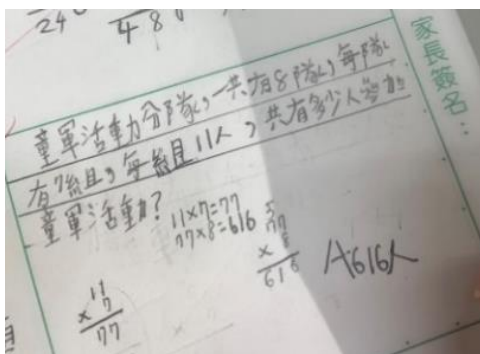 24
48
家長簽名：
童軍活動分隊，一共有8隊，每隊
有7組，每組11人，共有多少人參加
童軍活動？
11×7=77
77×8=616
5
77
× 8
616
A616人
11
× 7
77